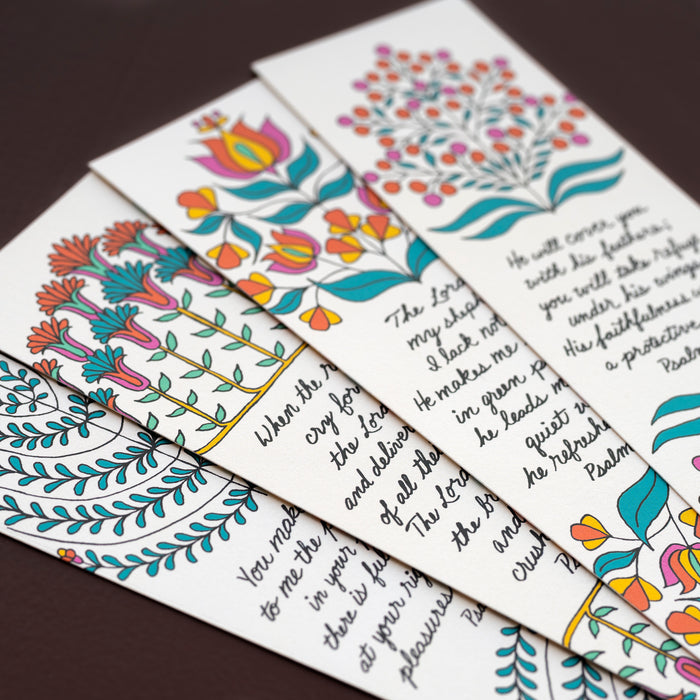 He will cover you
with his feathers;
you will take refuge
under his wings
His faithfulness
a protective
Psalm
The Lord
my shep
I lack not
He makes me
in green p
he leads m
quiet w
he refresh
Psalm
When the r
cry for
the Lord
and deliver
of all the
The Lord
the br
and
crush
Ps
You mak
to me the
in your
there is ful
at your rig
pleasures
Psa